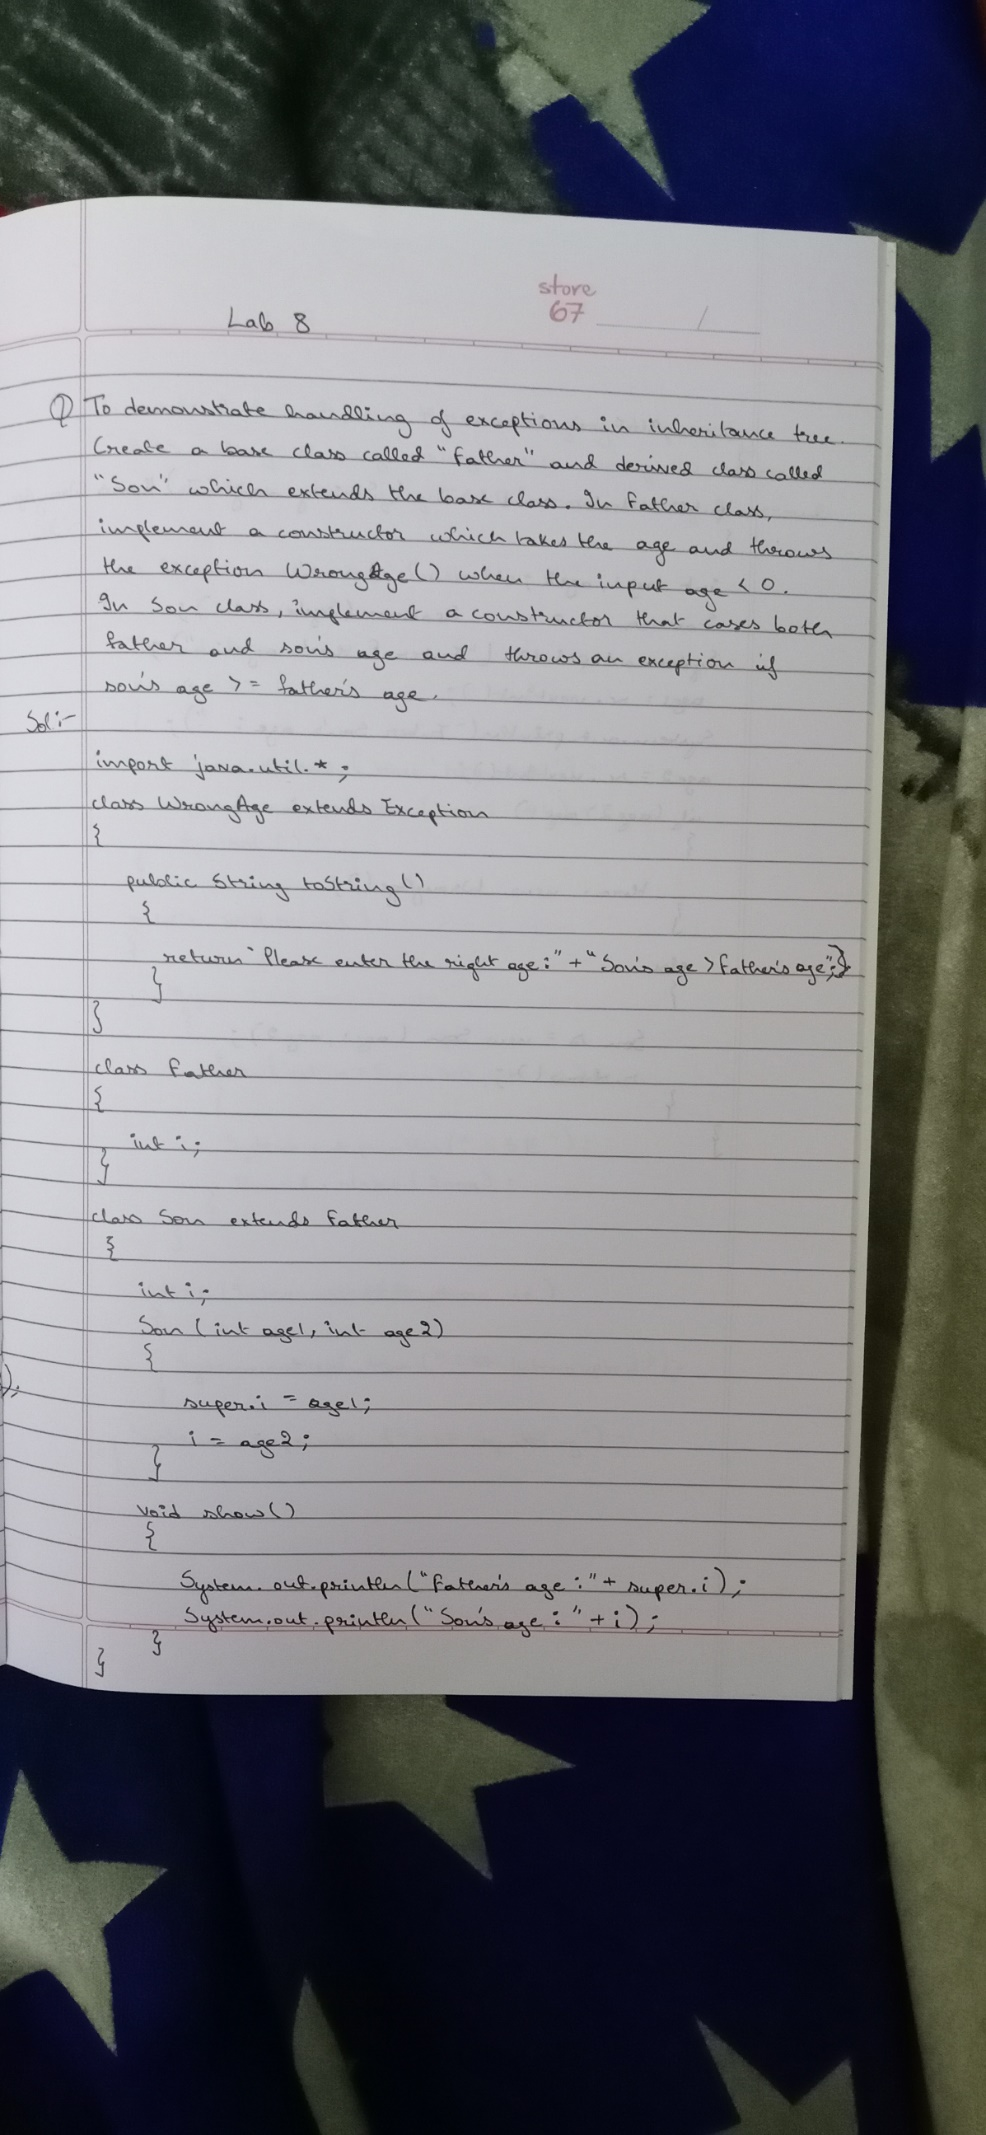 store
67
Lab 8
Q To demonstrate handling of exceptions in inheritance tree.
Create a base class called "Father" and derived class called
"Son" which extends the base class. In Father class,
implement a constructor which takes the age and throws
the exception WrongAge() when the input age < 0.
In Son class, implement a constructor that cases both
father and son's age and throws an exception if
son's age >= father's age.
Sol:-
import java.util.*;
class WrongAge extends Exception
{
public String toString()
{
return "Please enter the right age:" + "Son's age > Father's age";}
}
}
class Father
{
int i;
}
class Son extends Father
{
int i;
Son (int age1, int age2)
{
super.i = age1;
i = age2;
}
void show()
{
System.out.println("Father's age:" + super.i);
System.out.println("Son's age:" + i);
}
}